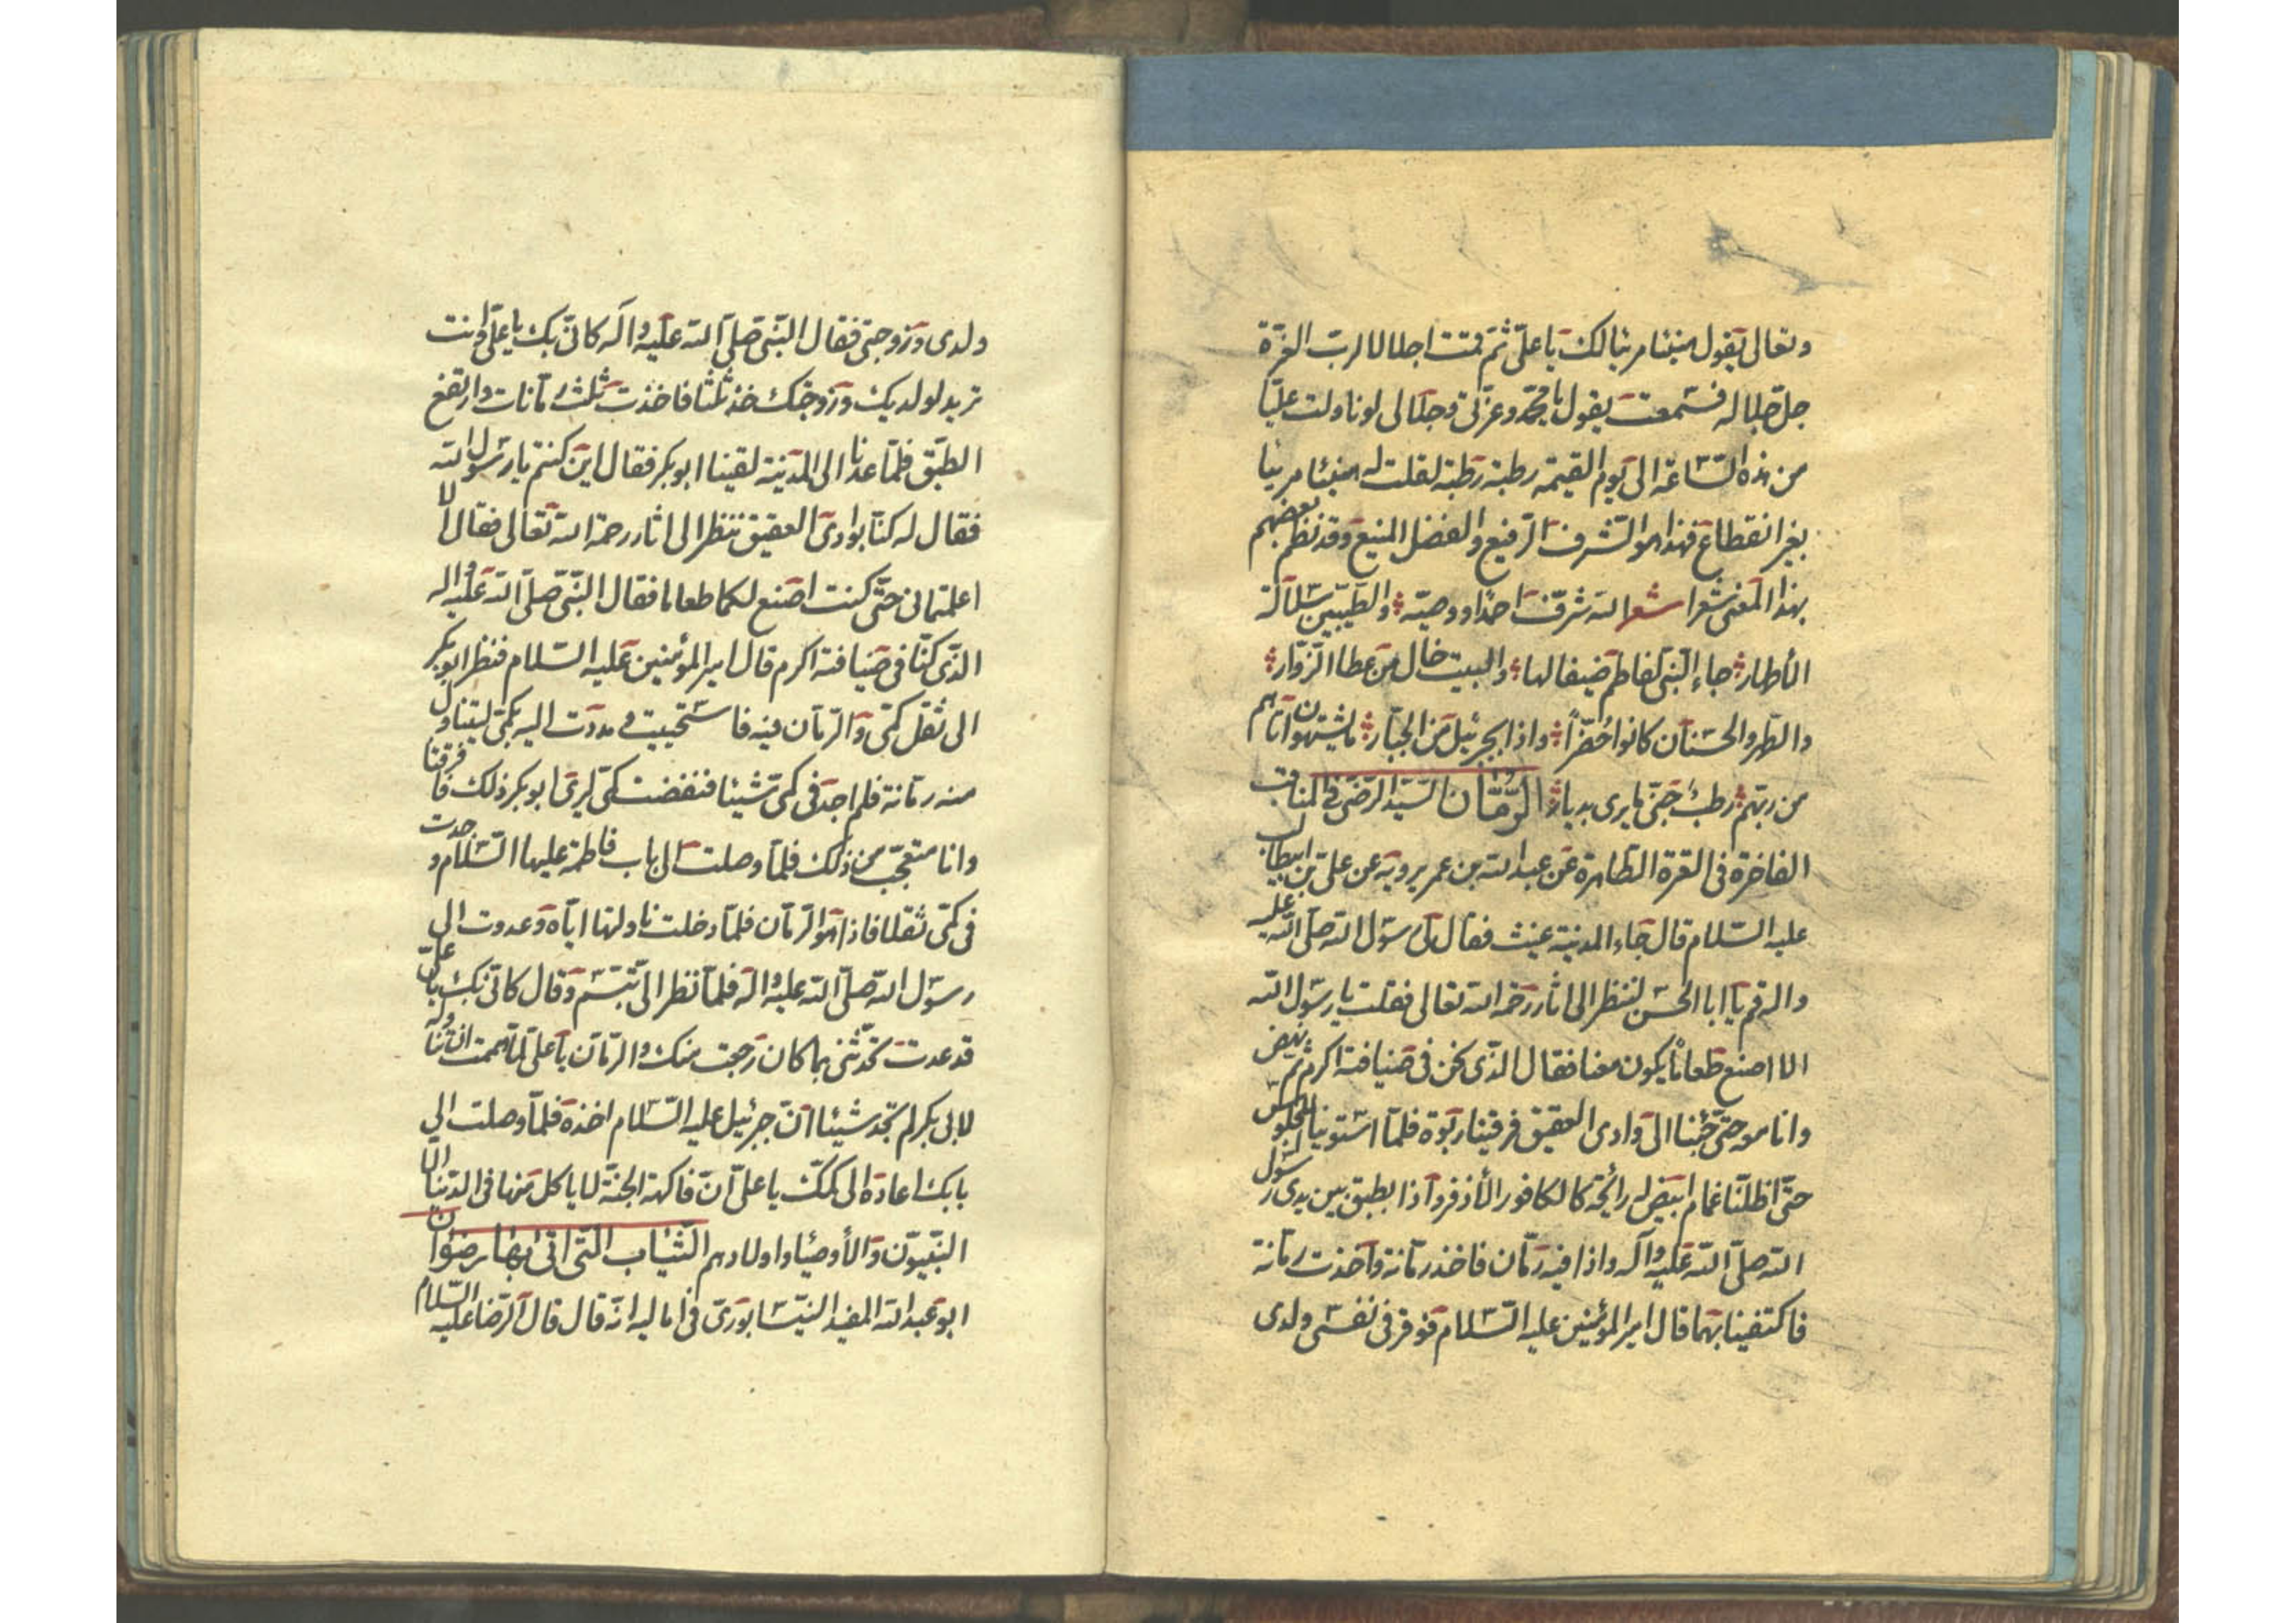 وتعالى يقول هنيئا مريئا لك يا على ثم قمت اجلالا لرب العزة
جل جلاله فسمعته يقول يا محمد وعزتى وجلالى لو ناولت عليا
من هذه الساعة الى يوم القيمة رطبة رطبة لقلت له هنيئا مريئا
بغير انقطاع فهذا هو الشرف الرفيع والفضل المنيع وقد نظم بعضهم
بهذا المعنى شعرا شعر الله شرف احمدا ووصيه والطيبين سلالة
الأطهار جاء النبى لفاطم ضيفا لها والبيت خال من عطا الزوار
والطهر والحسنان كانوا حضرا واذا بجبرئيل من الجبار ما يشتهون اتاهم
من ربهم رطب جنى ما يرى بديار الرمان السيد الرضى فى المناقب
الفاخرة فى العترة الطاهرة عن عبد الله بن عمر يرويه عن على بن ابيطالب
عليه السلام قال جاء المدينة غيث فقال لى رسول الله صلى الله عليه
واله قم يا ابا الحسن لننظر الى اثار رحمة الله تعالى فقلت يا رسول الله
الا اصنع طعاما يكون معنا فقال الذى نحن فى ضيافته اكرم ثم نهض
وانا معه حتى جئنا الى وادى العقيق فرقينا ربوة فلما استوينا للجلوس
حتى اظلنا غمام ابيض له رائحة كالكافور الأذفر واذا بطبق بين يدى رسول
الله صلى الله عليه وآله واذا فيه رمان فاخذ رمانة واخذت رمانة
فاكتفينا بهما قال امير المؤمنين عليه السلام فوقر فى نفسى ولدى
ولدى وزوجتى فقال النبى صلى الله عليه وآله كانى بك يا على وانت
تريد لولديك وزوجتك خذ ثلثا فاخذت ثلث رمانات وارتفع
الطبق فلما عدنا الى المدينة لقينا ابو بكر فقال اين كنتم يا رسول الله
فقال له كنا بوادى العقيق ننظر الى اثار رحمة الله تعالى فقال الا
اعلمتمانى حتى كنت اصنع لكما طعاما فقال النبى صلى الله عليه واله
الذى كنا فى ضيافته اكرم قال امير المؤمنين عليه السلام فنظر ابو بكر
الى ثقل كمى والرمان فيه فاستحييت و مددت اليه بكمى ليتناول
منه رمانة فلم اجد فى كمى شيئا فنفضت كمى ليرى ابو بكر ذلك فافترقنا
وانا متعجب من ذلك فلما وصلت الى باب فاطمة عليها السلام وجدت
فى كمى ثقلا فاذا هو الرمان فلما دخلت ناولتها اياه وعدوت الى
رسول الله صلى الله عليه واله فلما نظر الى تبسم وقال كانى بك يا على
قد عدت تحدثنى بما كان رجعت منك والرمان يا على لما هممت ان تناوله
لابى بكر لم تجد شيئا ان جبرئيل عليه السلام اخذه فلما وصلت الى
بابك اعاده الى كمك يا على ان فاكهة الجنة لا ياكل منها فى الدنيا الا
النبيون والأوصياء واولادهم الثياب التى اتى بها رضوان
ابو عبد الله المفيد النيشابورى فى اماليه انه قال قال الرضا عليه السلام